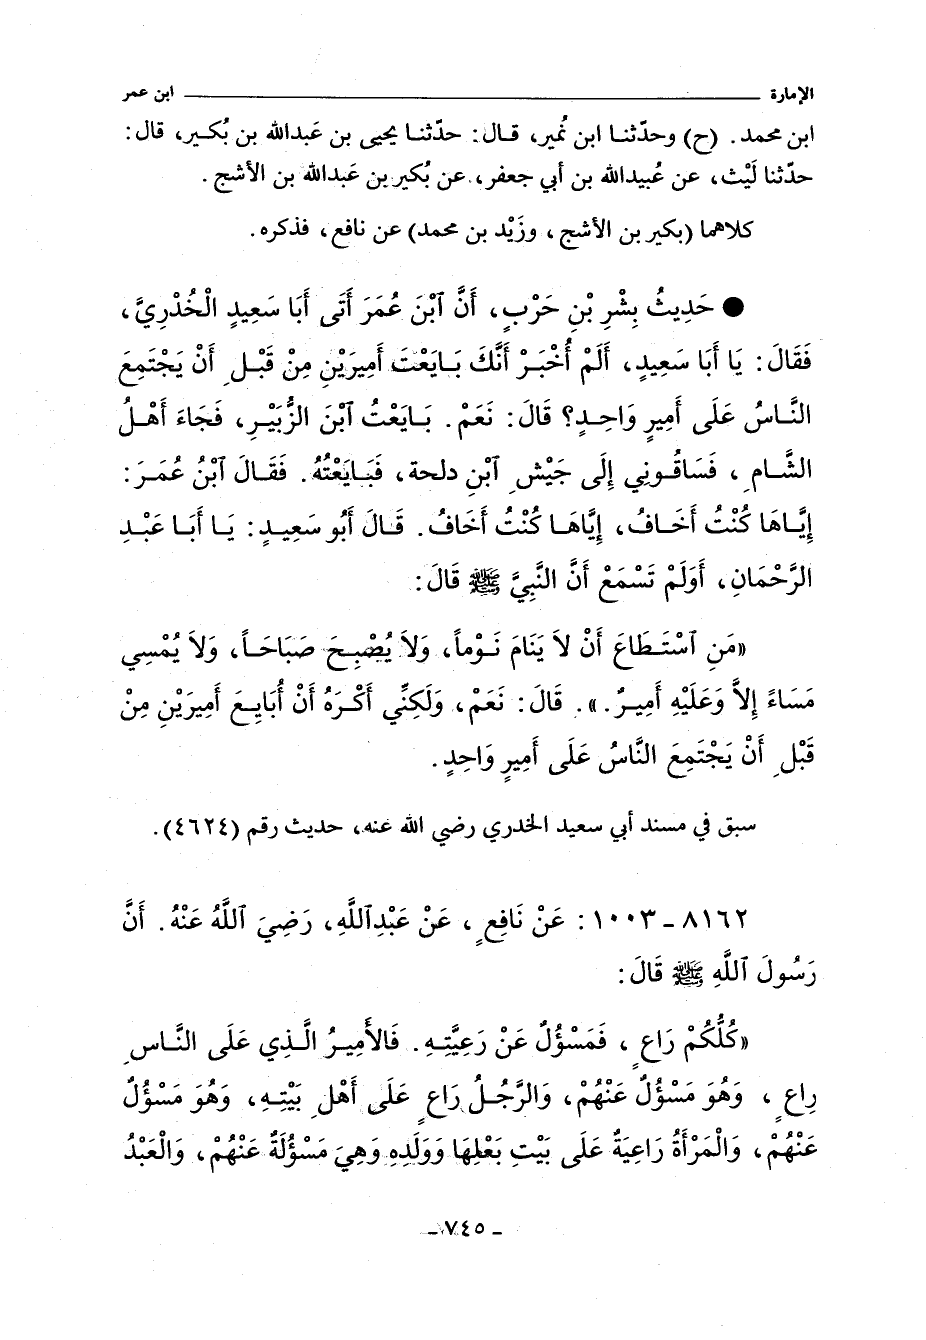 الإمارة ــــــــ ابن عمر
ابن محمد. (ح) وحدّثنا ابن نُمير، قال: حدّثنا يحيى بن عَبدالله بن بُكير، قال:
حدّثنا لَيْث، عن عُبيدالله بن أبي جعفر، عن بُكير بن عَبدالله بن الأشج.
كلاهما (بكير بن الأشج، وزَيْد بن محمد) عن نافع، فذكره.
● حَدِيثُ بِشْرِ بْنِ حَرْبٍ، أَنَّ ٱبْنَ عُمَرَ أَتَى أَبَا سَعِيدٍ الْخُدْرِيَّ،
فَقَالَ: يَا أَبَا سَعِيدٍ، أَلَمْ أُخْبَرْ أَنَّكَ بَايَعْتَ أَمِيرَيْنِ مِنْ قَبْلِ أَنْ يَجْتَمِعَ
النَّاسُ عَلَى أَمِيرٍ وَاحِدٍ؟ قَالَ: نَعَمْ. بَايَعْتُ ٱبْنَ الزُّبَيْرِ، فَجَاءَ أَهْلُ
الشَّامِ، فَسَاقُونِي إِلَى جَيْشِ ٱبْنِ دلحة، فَبَايَعْتُهُ. فَقَالَ ٱبْنُ عُمَرَ:
إِيَّاهَا كُنْتُ أَخَافُ، إِيَّاهَا كُنْتُ أَخَافُ. قَالَ أَبُو سَعِيدٍ: يَا أَبَا عَبْدِ
الرَّحْمَانِ، أَوَلَمْ تَسْمَعْ أَنَّ النَّبِيَّ ﷺ قَالَ:
«مَنِ ٱسْتَطَاعَ أَنْ لاَ يَنَامَ نَوْماً، وَلاَ يُصْبِحَ صَبَاحَاً، وَلاَ يُمْسِي
مَسَاءً إِلاَّ وَعَلَيْهِ أَمِيرٌ.». قَالَ: نَعَمْ، وَلَكِنِّي أَكْرَهُ أَنْ أُبَايِعَ أَمِيرَيْنِ مِنْ
قَبْلِ أَنْ يَجْتَمِعَ النَّاسُ عَلَى أَمِيرٍ وَاحِدٍ.
سبق في مسند أبي سعيد الخدري رضي الله عنه، حديث رقم (٤٦٢٤).
٨١٦٢ ـ ١٠٠٣: عَنْ نَافِعٍ، عَنْ عَبْدِٱللَّهِ، رَضِيَ ٱللَّهُ عَنْهُ. أَنَّ
رَسُولَ ٱللَّهِ ﷺ قَالَ:
«كُلُّكُمْ رَاعٍ، فَمَسْؤُلٌ عَنْ رَعِيَّتِهِ. فَالأَمِيرُ الَّذِي عَلَى النَّاسِ
رِاعٍ، وَهُوَ مَسْؤُلٌ عَنْهُمْ، وَالرَّجُلُ رَاعٍ عَلَى أَهْلِ بَيْتِهِ، وَهُوَ مَسْؤُلٌ
عَنْهُمْ، وَالْمَرْأَةُ رَاعِيَةٌ عَلَى بَيْتِ بَعْلِهَا وَوَلَدِهِ وَهِيَ مَسْؤُلَةٌ عَنْهُمْ، وَالْعَبْدُ
ـ ٧٤٥ ـ